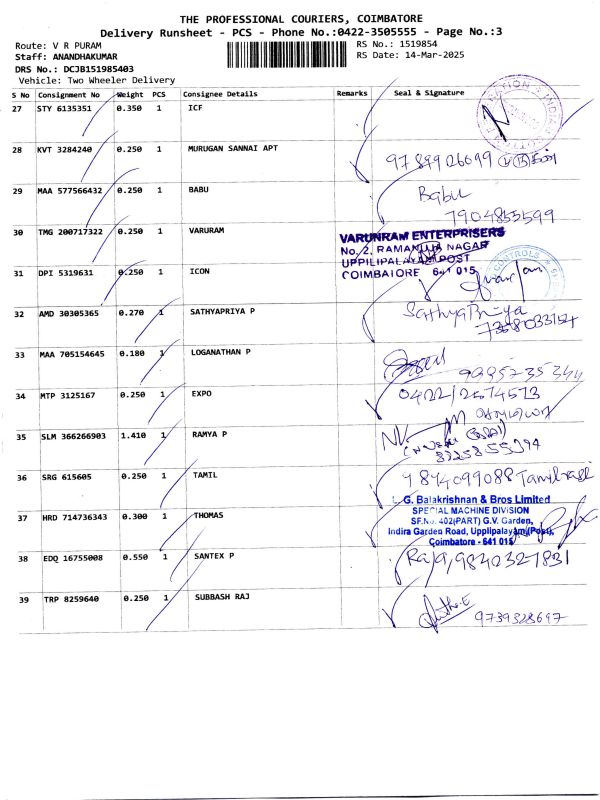 THE PROFESSIONAL COURIERS, COIMBATORE
Delivery Runsheet - PCS - Phone No.:0422-3505555 - Page No.:3
Route: V R PURAM
RS No.: 1519854
Staff: ANANDHAKUMAR
RS Date: 14-Mar-2025
DRS No.: DCJB151985403
Vehicle: Two Wheeler Delivery
S No Consignment No Weight PCS Consignee Details Remarks Seal & Signature
27 STY 6135351 0.350 1 ICF
28 KVT 3284240 0.250 1 MURUGAN SANNAI APT
9789926099
29 MAA 577566432 0.250 1 BABU Babu
7904855599
30 TMG 200717322 0.250 1 VARURAM
VARUNRAM ENTERPRISERS
No. 2, RAMANUJA NAGAR
UPPILIPALAYAM POST
COIMBATORE 641 015
31 DPI 5319631 0.250 1 ICON
CONTROLS
32 AMD 30305365 0.270 1 SATHYAPRIYA P SathyaPriya
7358033154
33 MAA 705154645 0.180 1 LOGANATHAN P
9995735344
34 MTP 3125167 0.250 1 EXPO 0422/2574573
35 SLM 366266903 1.410 1 RAMYA P
36 SRG 615605 0.250 1 TAMIL 9894099088 Tamilrasi
37 HRD 714736343 0.300 1 THOMAS
L. G. Balakrishnan & Bros Limited
SPECIAL MACHINE DIVISION
SF.No. 402(PART) G.V. Garden,
Indira Garden Road, Upplipalayam(Post),
Coimbatore - 641 015
38 EDQ 16755008 0.550 1 SANTEX P Raja, 9840327831
39 TRP 8259640 0.250 1 SUBBASH RAJ
9739328697